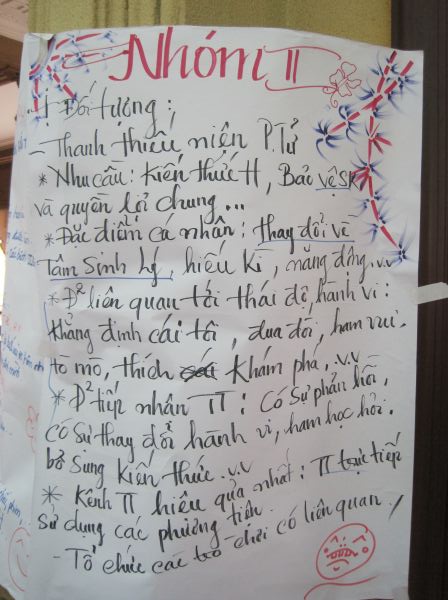 Nhóm II
I Đối tượng:
- Thanh thiếu niên P.Tử
* Nhu cầu: Kiến thức H, Bảo vệ SK
và quyền lợi chung...
* Đặc điểm cá nhân: thay đổi về
Tâm sinh lý, hiếu kì, năng động.v.v
* Đ² liên quan tới thái độ, hành vi:
Khẳng định cái tôi, đua đòi, ham vui.
tò mò, thích khám phá.v.v
* Đ² tiếp nhận TT: Có sự phản hồi,
có sự thay đổi hành vi, ham học hỏi.
bổ sung kiến thức.v.v
* Kênh TT hiệu quả nhất: TT trực tiếp
sử dụng các phương tiện.
- Tổ chức các trò chơi có liên quan.